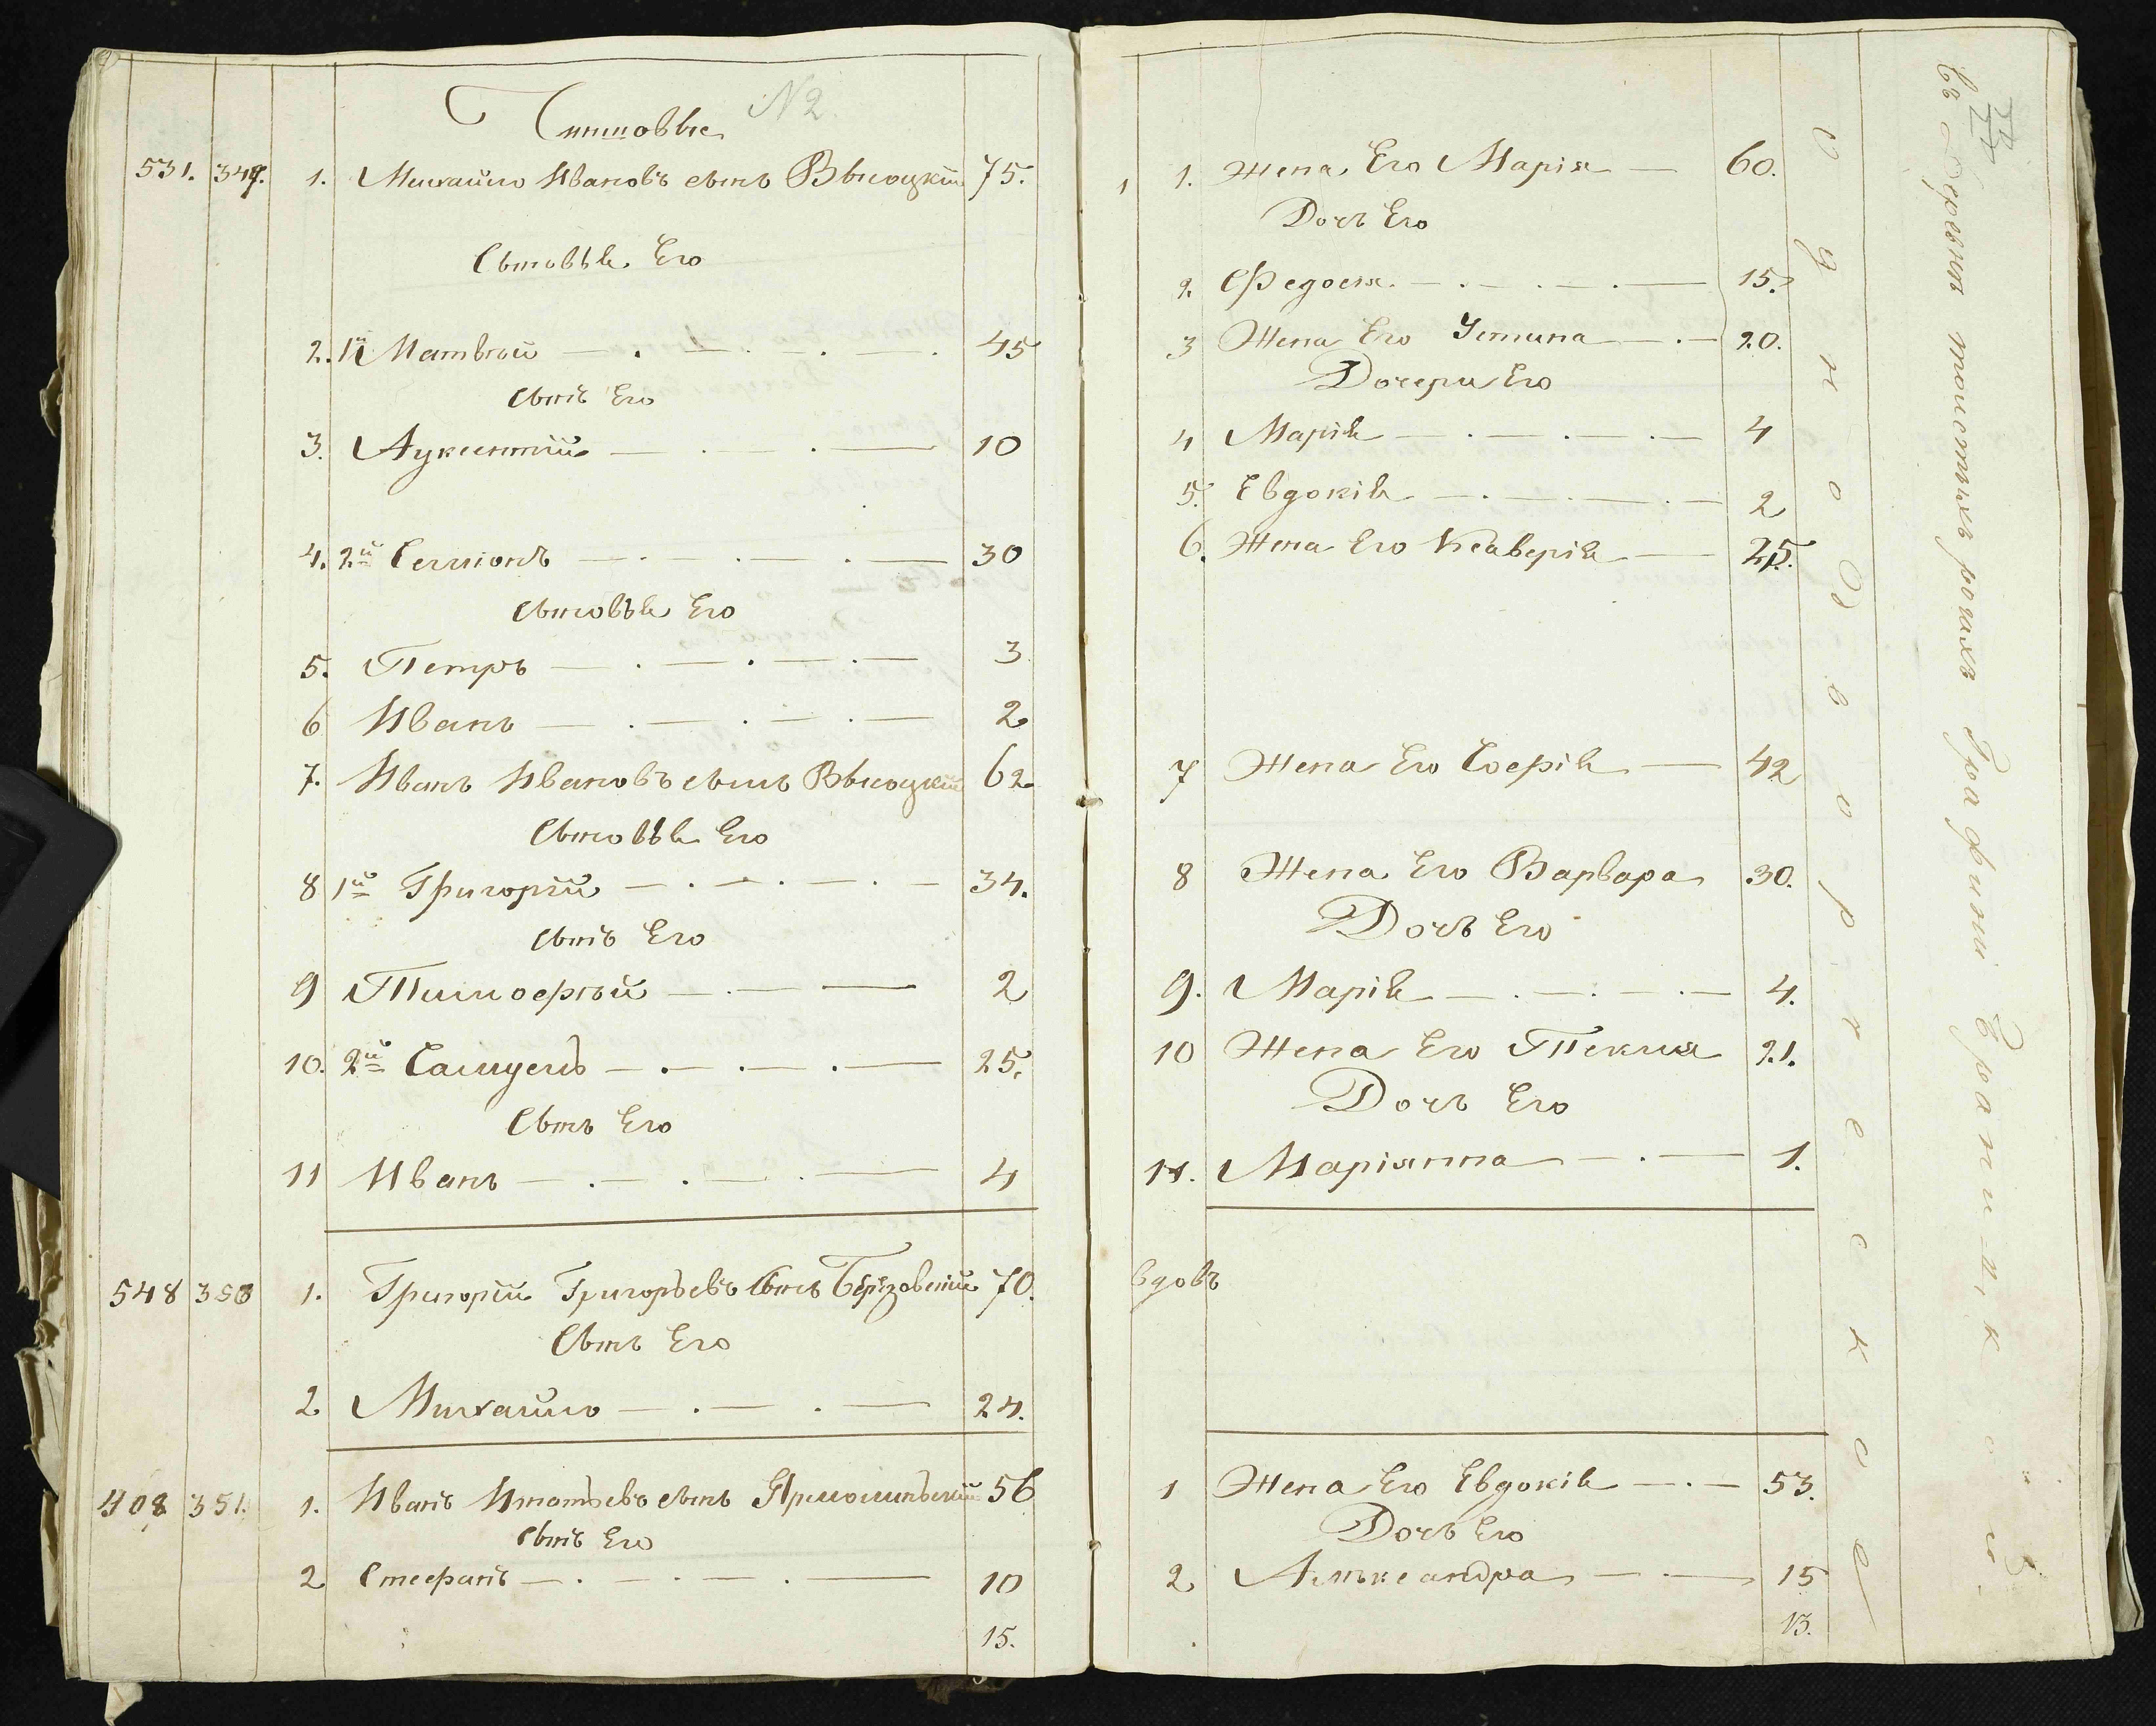 N 2
531. 349. 1. Михайло Ивановъ сынъ Высоцкій 75.
Сыновья Его
2. 1й Матвѣй 45
Сынъ Его
3. Ауксентій 10
4. 2й Семіонъ 30
Сыновья Его
5. Петръ 3
6 Иванъ 2
7. Иванъ Ивановъ сынъ Высоцкій 62
Сыновья Его
8 1й Григорій 34.
Сынъ Его
9 Тимофѣй 2
10. 2й Самуелъ 25.
Сынъ Его
11 Иванъ 4
548 350 1. Григорій Григорьевъ Сынъ Березовскій 70.
Сынъ Его
2 Михайло 24.
408 351. 1. Иванъ Игнатьевъ сынъ Ярмолинскій 56
Сынъ Его
2 Стефанъ 10
15.
1. Жена Его Марія 60.
Дочь Его
2. Федося 15.
3 Жена Его Устина 20.
Дочери Его
4 Марія 4
5. Евдокія 2
6. Жена Его Ксаверія 25.
7 Жена Его Софія 42
8 Жена Его Варвара 30.
Дочь Его
9. Марія 4.
10 Жена Его Текля 21.
Дочь Его
11. Маріянна 1.
вдовъ
1 Жена Его Евдокія 53.
Дочь Его
2 Алѣксандра 15
13.
однодворческое
въ Деревни толстыхъ рогахъ Графини